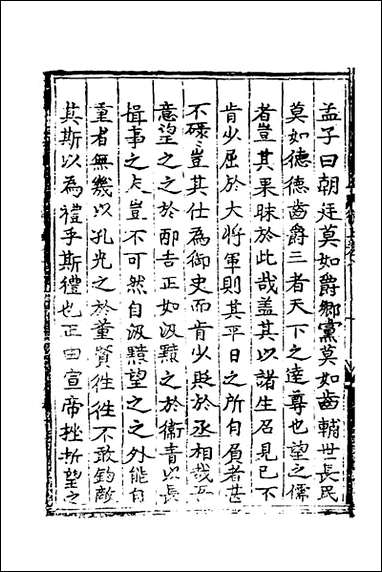 孟子曰朝廷莫如爵鄉黨莫如齒輔世長民
莫如德德齒爵三者天下之達尊也望之儒
者豈其果昧於此哉盖其以諸生召見已不
肯少屈於大將軍則其平日之所自負者甚
不碌〻豈其仕為御史而肯少貶於丞相哉
意望之之於邴吉正如汲黯之於衛青以長
揖事之矣豈不可然自汲黯望之之外能自
重者無幾以孔光之於董賢徃徃不敢鈞敵
其斯以為禮乎斯禮也正由宣帝挫折望之